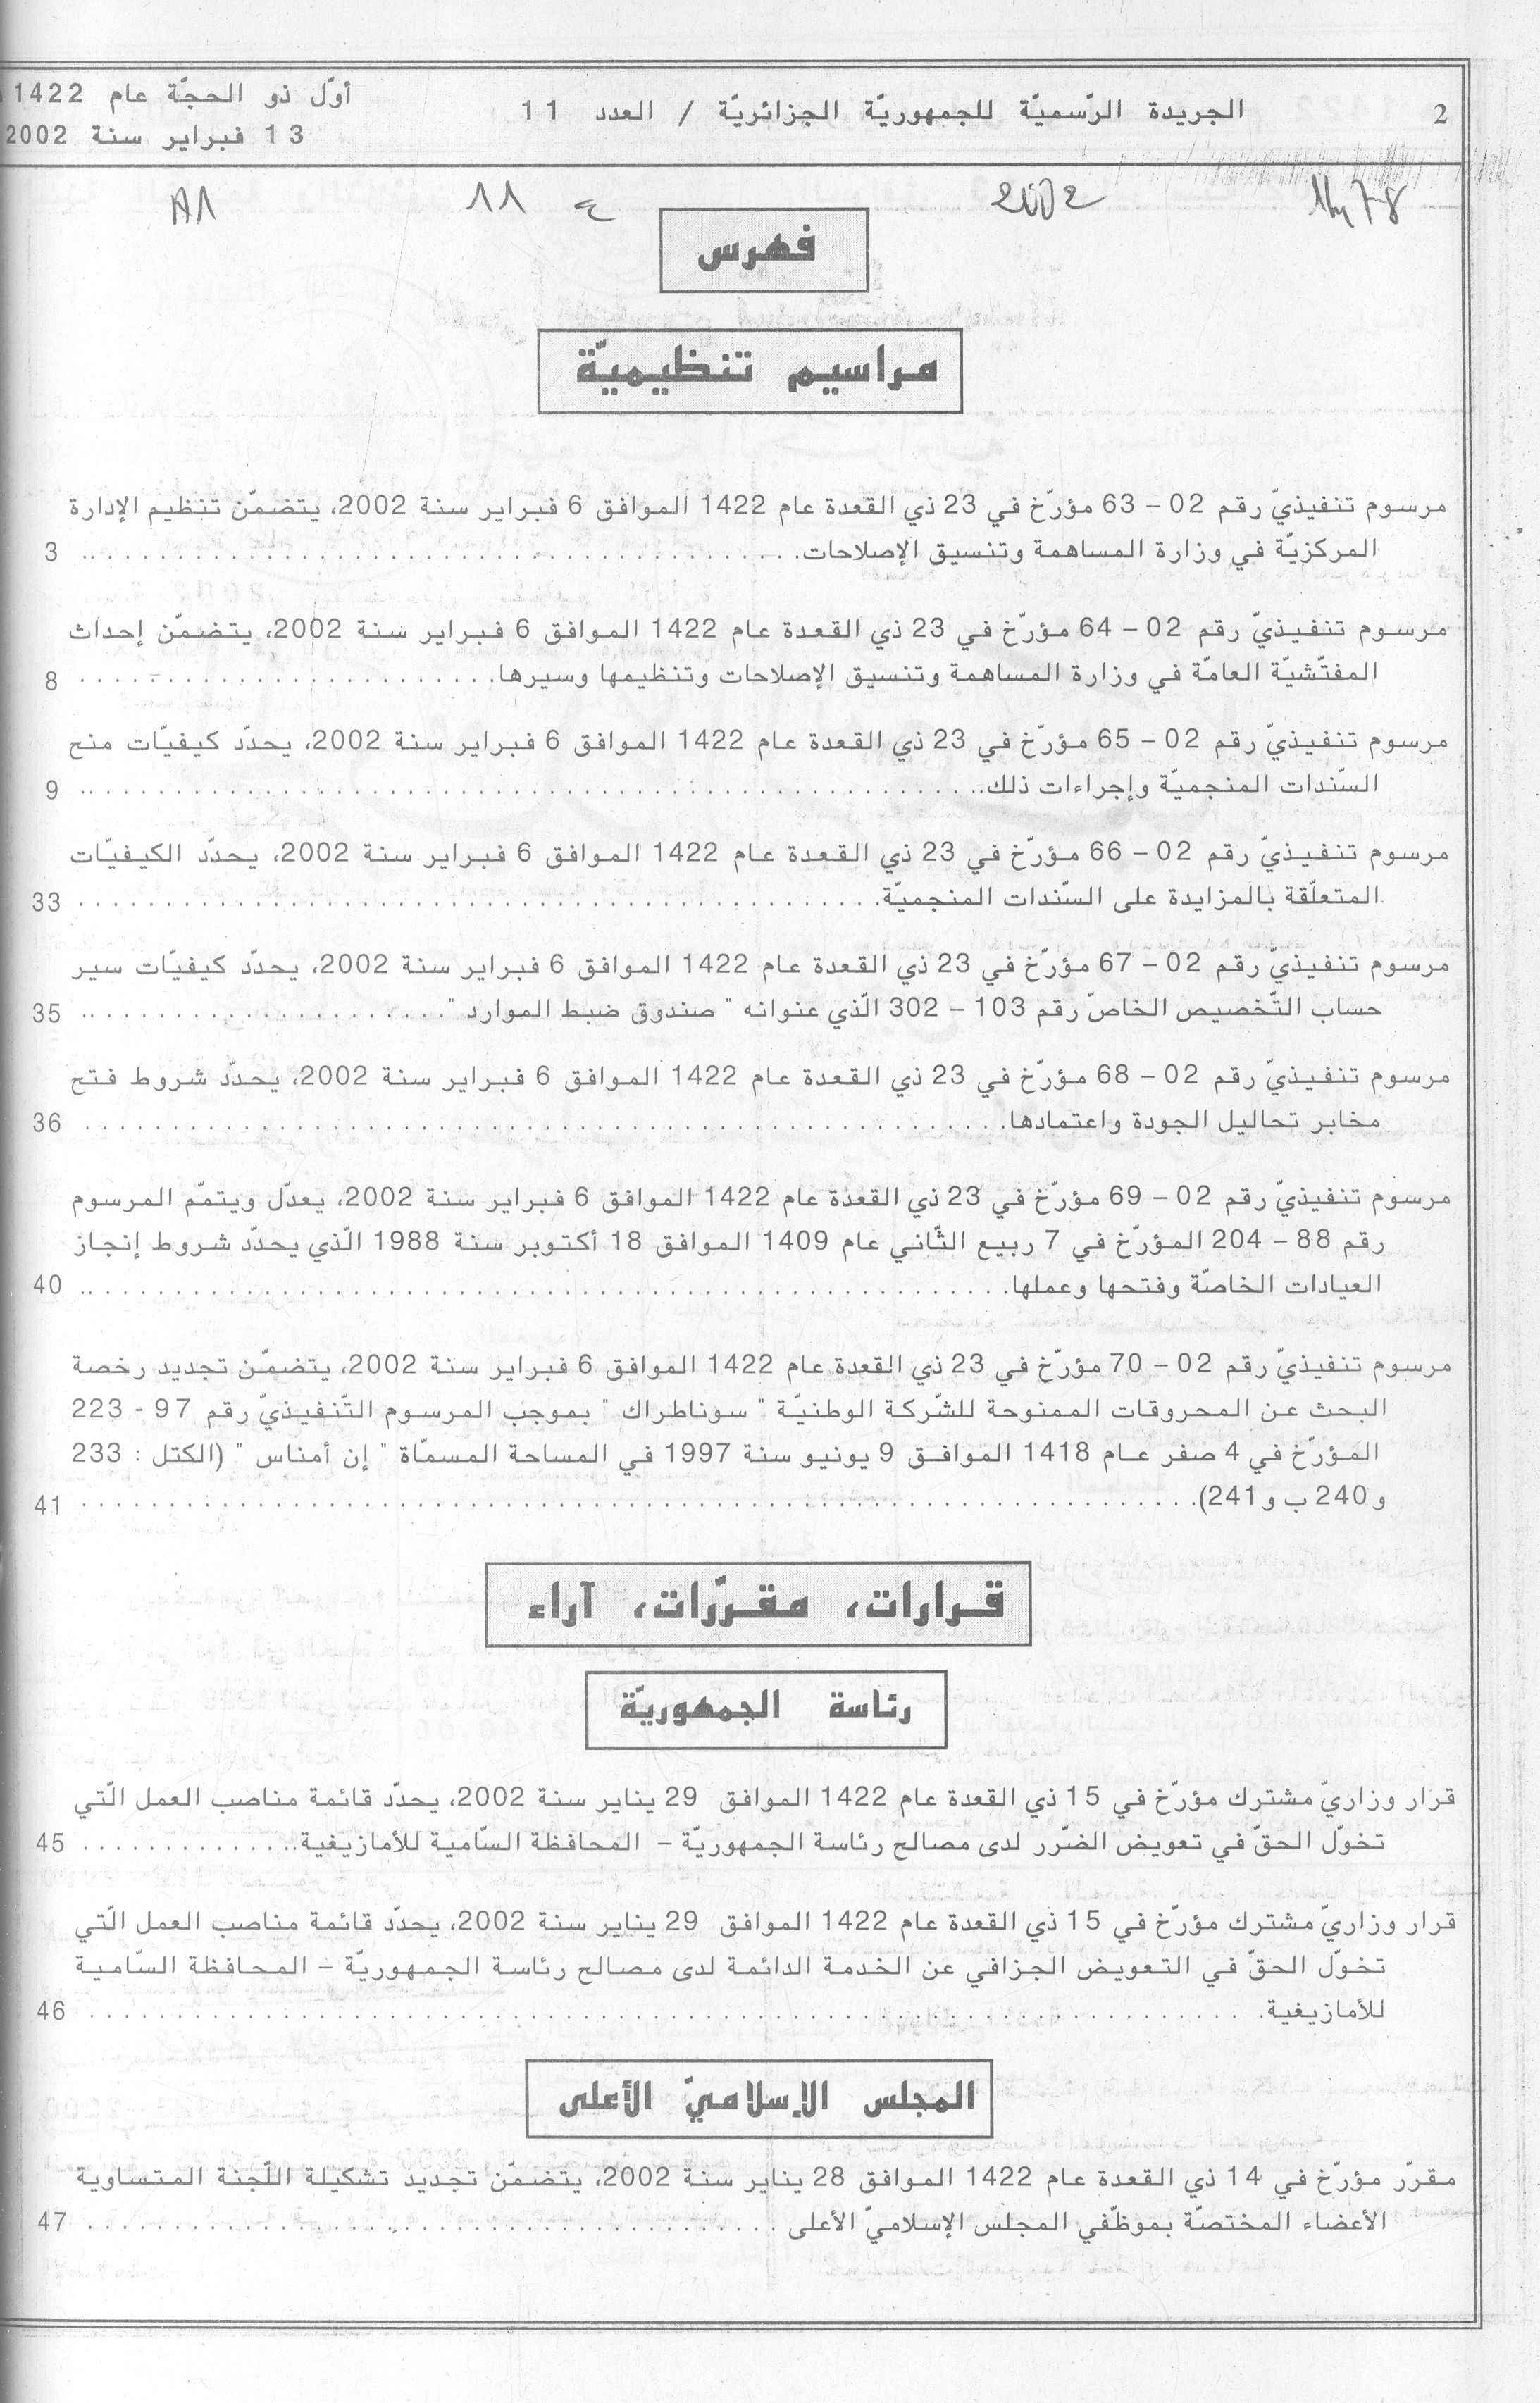 2
الجريدة الرّسميّة للجمهوريّة الجزائريّة / العدد 11
أوّل ذو الحجّة عام 1422
13 فبراير سنة 2002
2002
ع 11
فهرس
مراسيم تنظيميّة
مرسوم تنفيذيّ رقم 02 – 63 مؤرّخ في 23 ذي القعدة عام 1422 الموافق 6 فبراير سنة 2002، يتضمّن تنظيم الإدارة
المركزيّة في وزارة المساهمة وتنسيق الإصلاحات. 3
مرسوم تنفيذيّ رقم 02 – 64 مؤرّخ في 23 ذي القعدة عام 1422 الموافق 6 فبراير سنة 2002، يتضمّن إحداث
المفتّشيّة العامّة في وزارة المساهمة وتنسيق الإصلاحات وتنظيمها وسيرها. 8
مرسوم تنفيذيّ رقم 02 – 65 مؤرّخ في 23 ذي القعدة عام 1422 الموافق 6 فبراير سنة 2002، يحدّد كيفيّات منح
السّندات المنجميّة وإجراءات ذلك. 9
مرسوم تنفيذيّ رقم 02 – 66 مؤرّخ في 23 ذي القعدة عام 1422 الموافق 6 فبراير سنة 2002، يحدّد الكيفيّات
المتعلّقة بالمزايدة على السّندات المنجميّة. 33
مرسوم تنفيذيّ رقم 02 – 67 مؤرّخ في 23 ذي القعدة عام 1422 الموافق 6 فبراير سنة 2002، يحدّد كيفيّات سير
حساب التّخصيص الخاصّ رقم 103 – 302 الّذي عنوانه " صندوق ضبط الموارد " 35
مرسوم تنفيذيّ رقم 02 – 68 مؤرّخ في 23 ذي القعدة عام 1422 الموافق 6 فبراير سنة 2002، يحدّد شروط فتح
مخابر تحاليل الجودة واعتمادها. 36
مرسوم تنفيذيّ رقم 02 – 69 مؤرّخ في 23 ذي القعدة عام 1422 الموافق 6 فبراير سنة 2002، يعدّل ويتمّم المرسوم
رقم 88 – 204 المؤرّخ في 7 ربيع الثّاني عام 1409 الموافق 18 أكتوبر سنة 1988 الّذي يحدّد شروط إنجاز
العيادات الخاصّة وفتحها وعملها. 40
مرسوم تنفيذيّ رقم 02 – 70 مؤرّخ في 23 ذي القعدة عام 1422 الموافق 6 فبراير سنة 2002، يتضمّن تجديد رخصة
البحث عن المحروقات الممنوحة للشّركة الوطنيّة " سوناطراك " بموجب المرسوم التّنفيذيّ رقم 97 - 223
المؤرّخ في 4 صفر عام 1418 الموافق 9 يونيو سنة 1997 في المساحة المسمّاة " إن أمناس " (الكتل : 233
و 240 ب و 241). 41
قرارات، مقرّرات، آراء
رئاسة الجمهوريّة
قرار وزاريّ مشترك مؤرّخ في 15 ذي القعدة عام 1422 الموافق 29 يناير سنة 2002، يحدّد قائمة مناصب العمل الّتي
تخوّل الحقّ في تعويض الضّرر لدى مصالح رئاسة الجمهوريّة – المحافظة السّامية للأمازيغية. 45
قرار وزاريّ مشترك مؤرّخ في 15 ذي القعدة عام 1422 الموافق 29 يناير سنة 2002، يحدّد قائمة مناصب العمل الّتي
تخوّل الحقّ في التعويض الجزافي عن الخدمة الدائمة لدى مصالح رئاسة الجمهوريّة – المحافظة السّامية
للأمازيغية. 46
المجلس الإسلاميّ الأعلى
مقرّر مؤرّخ في 14 ذي القعدة عام 1422 الموافق 28 يناير سنة 2002، يتضمّن تجديد تشكيلة اللّجنة المتساوية
الأعضاء المختصّة بموظّفي المجلس الإسلاميّ الأعلى 47